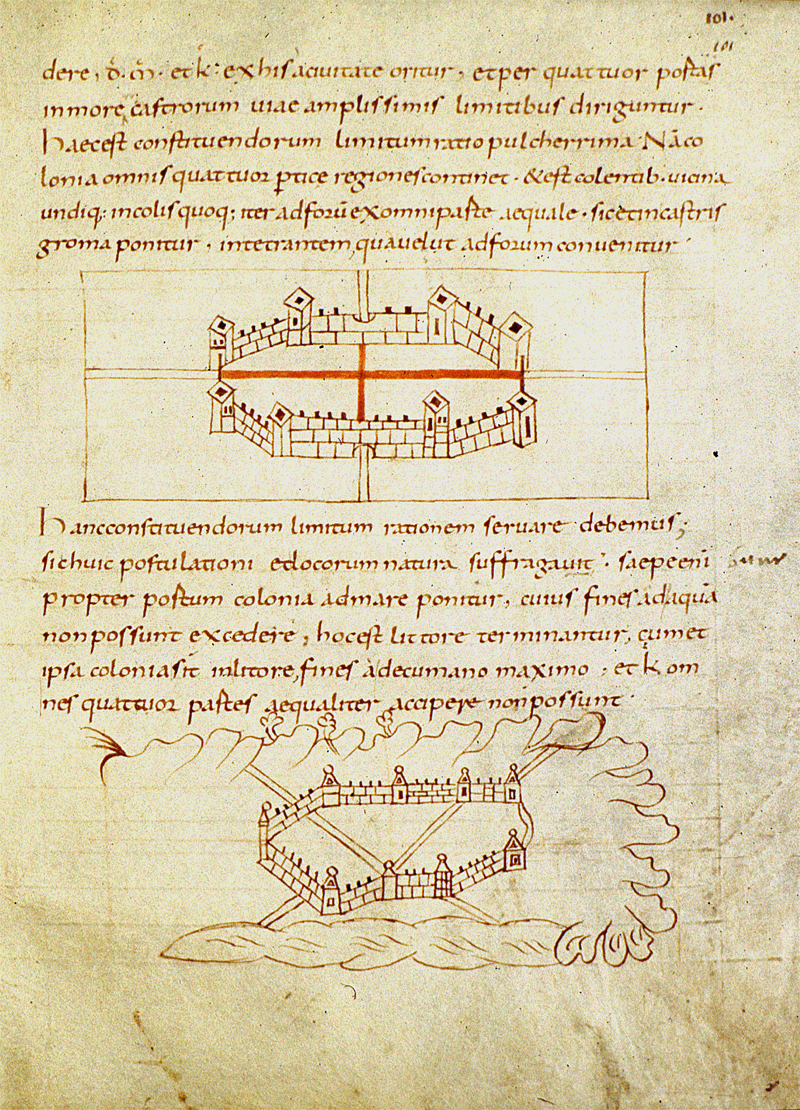 101.
101
dere, d̄. m̄. et k̄: exhis acivitate oritur, et per quattuor portas
in more castrorum viae amplissimis limitibus diriguntur.
Haec est constituendorum limitum ratio pulcherrima. Nā co
lonia omnis quattuor ptice regiones continet. & est colentib. vicina
undiq; incolis quoq; iter ad forū ex omni parte aequale. sic et in castris
groma ponitur, in tetrantem qua velut ad forum convenitur.
Hanc constituendorum limitum rationem servare debemus;
si huic postulationi et locorum natura suffragavit. saepe enī
propter portum colonia ad mare ponitur, cuius fines ad aquā
non possunt excedere, hoc est littore terminantur, cum et
ipsa colonia sit in litore, fines à decumano maximo, et k̄ om
nes quattuor partes aequaliter accipere non possunt.